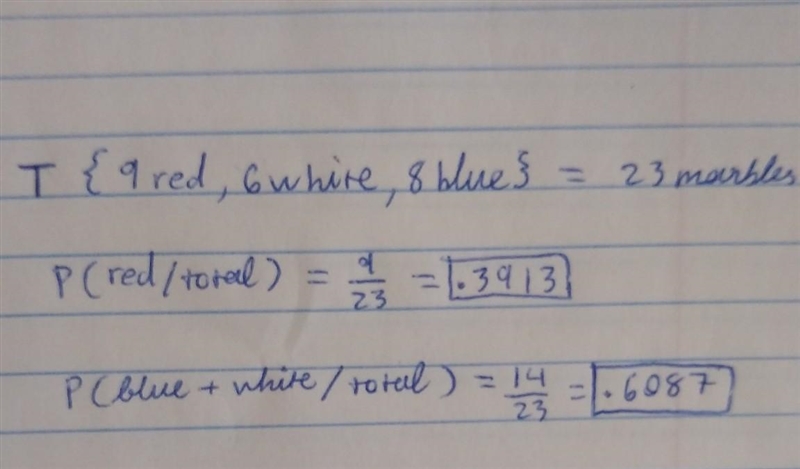 T {9 red, 6 white, 8 blue} = 23 marbles
P(red/total) = 9/23 = .3913
P(blue + white/total) = 14/23 = .6087